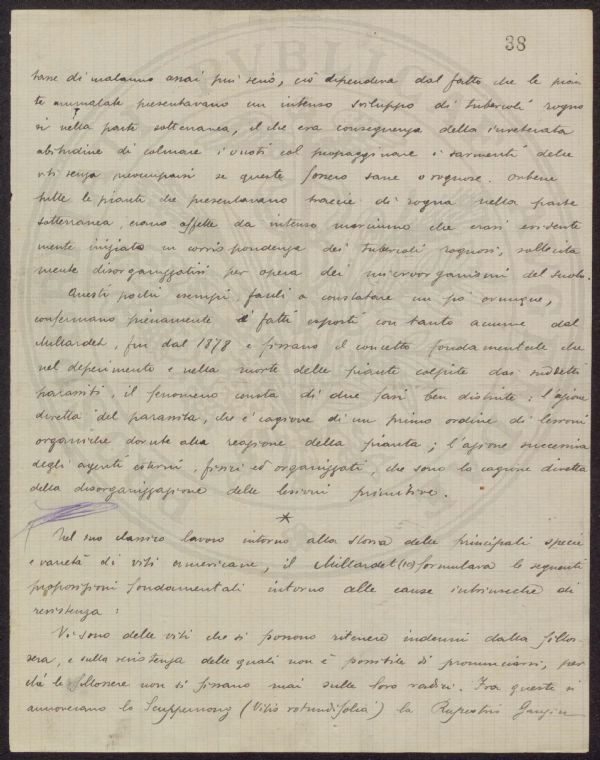 38
tasse di malanno assai più serio, ciò dipendeva dal fatto che le pian
te ammalate presentavano un intenso sviluppo di tubercoli rogno
si nella parte sotterranea, il che era conseguenza della inveterata
abitudine di colmare i vuoti col propagginare i sarmenti delle
viti senza preoccuparsi se queste fossero sane o rognose. Orbene
tutte le piante che presentavano traccie di rogna nella parte
sotterranea, erano affette da intenso marciume che erasi evidente
mente iniziato in corrispondenza dei tubercoli rognosi, sollecita
mente disorganizzatisi per opera dei microorganismi del suolo.
Questi pochi esempi, facili a constatare un po' ovunque,
confermano pienamente i fatti esposti con tanto acume dal
Millardet, fin dal 1878 e fissano il concetto fondamentale che
nel deperimento e nella morte delle piante colpite dai suddetti
parassiti, il fenomeno consta di due fasi ben distinte: l'azione
diretta del parassita, che è cagione di un primo ordine di lesioni
organiche dovute alla reazione della pianta; l'azione successiva
degli agenti esterni, fisici ed organizzati, che sono la cagione diretta
della disorganizzazione delle lesioni primitive.
*
Nel suo classico lavoro intorno alla storia delle principali specie
e varietà di viti americane, il Millardet (10) formulava le seguenti
proposizioni fondamentali intorno alle cause intrinseche di
resistenza:
Vi sono delle viti che si possono ritenere indenni dalla fillos-
sera, e sulla resistenza delle quali non è possibile di pronunciarsi, per
ché le fillossere non si fissano mai sulle loro radici. Fra queste si
annoverano lo Scuppernong (Vitis rotundifolia) la Rupestris Ganzin